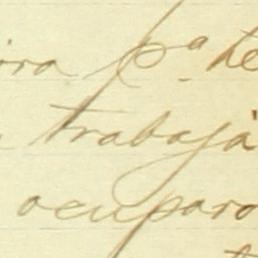 ora pa te
trabajá
ocuparo